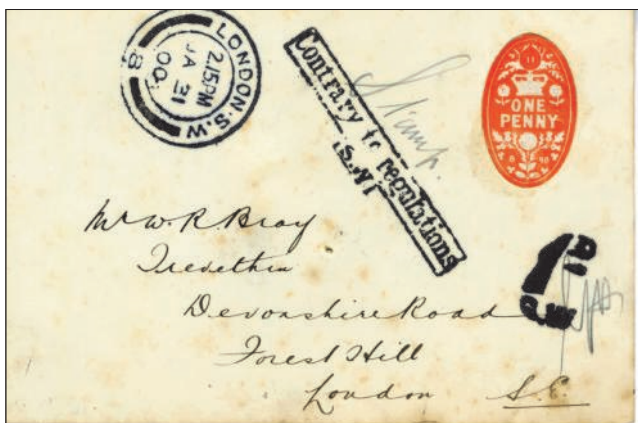 LONDON.S.W
2.15PM
JA 31
00
8
Contrary to regulations
S.W.1
Stamp.
11
ONE
PENNY
8 98
1D
S.W.
Mr W. R. Bray
Trevethin
Devonshire Road
Forest Hill
London S.E.